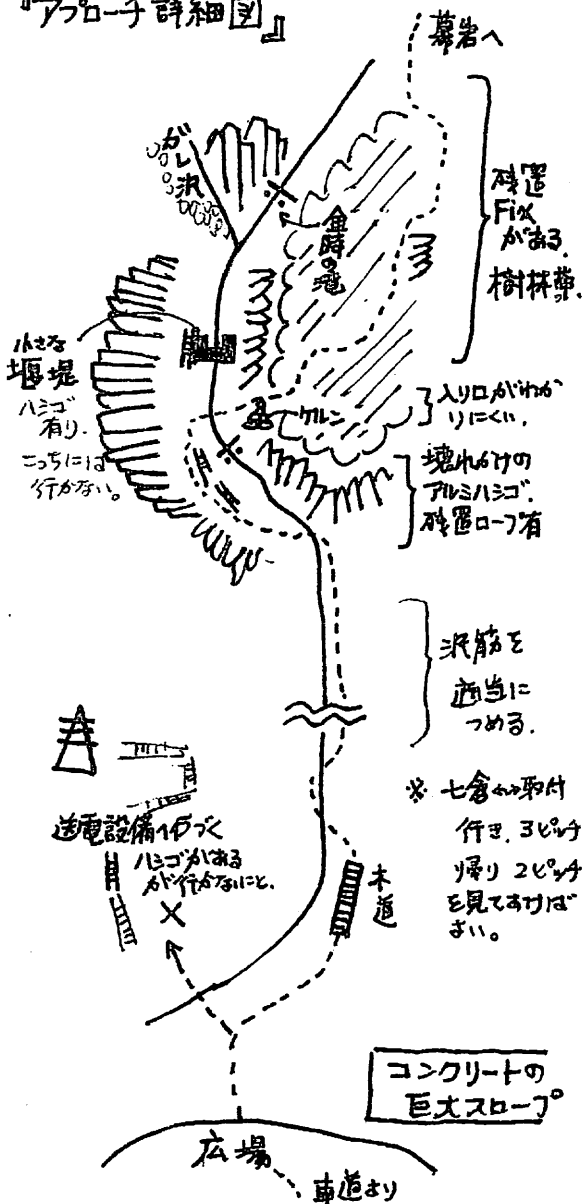 『アプローチ詳細図』
幕岩へ
ガレ沢
金時の滝
残置
Fixが
がある.
樹林帯.
小さな
堰堤
ハシゴ
有り.
こっちには
行かない。
ケルン
入り口がわか
りにくい.
壊れかけの
アルミハシゴ.
残置ロープ有
沢筋を
適当に
つめる.
送電設備へ行づく
ハシゴがある
が行かないこと.
木道
※ 七倉から取付
行き、3ピッチ
帰り 2ピッチ
を見ておけば
よい。
コンクリートの
巨大スロープ
広場
車道より